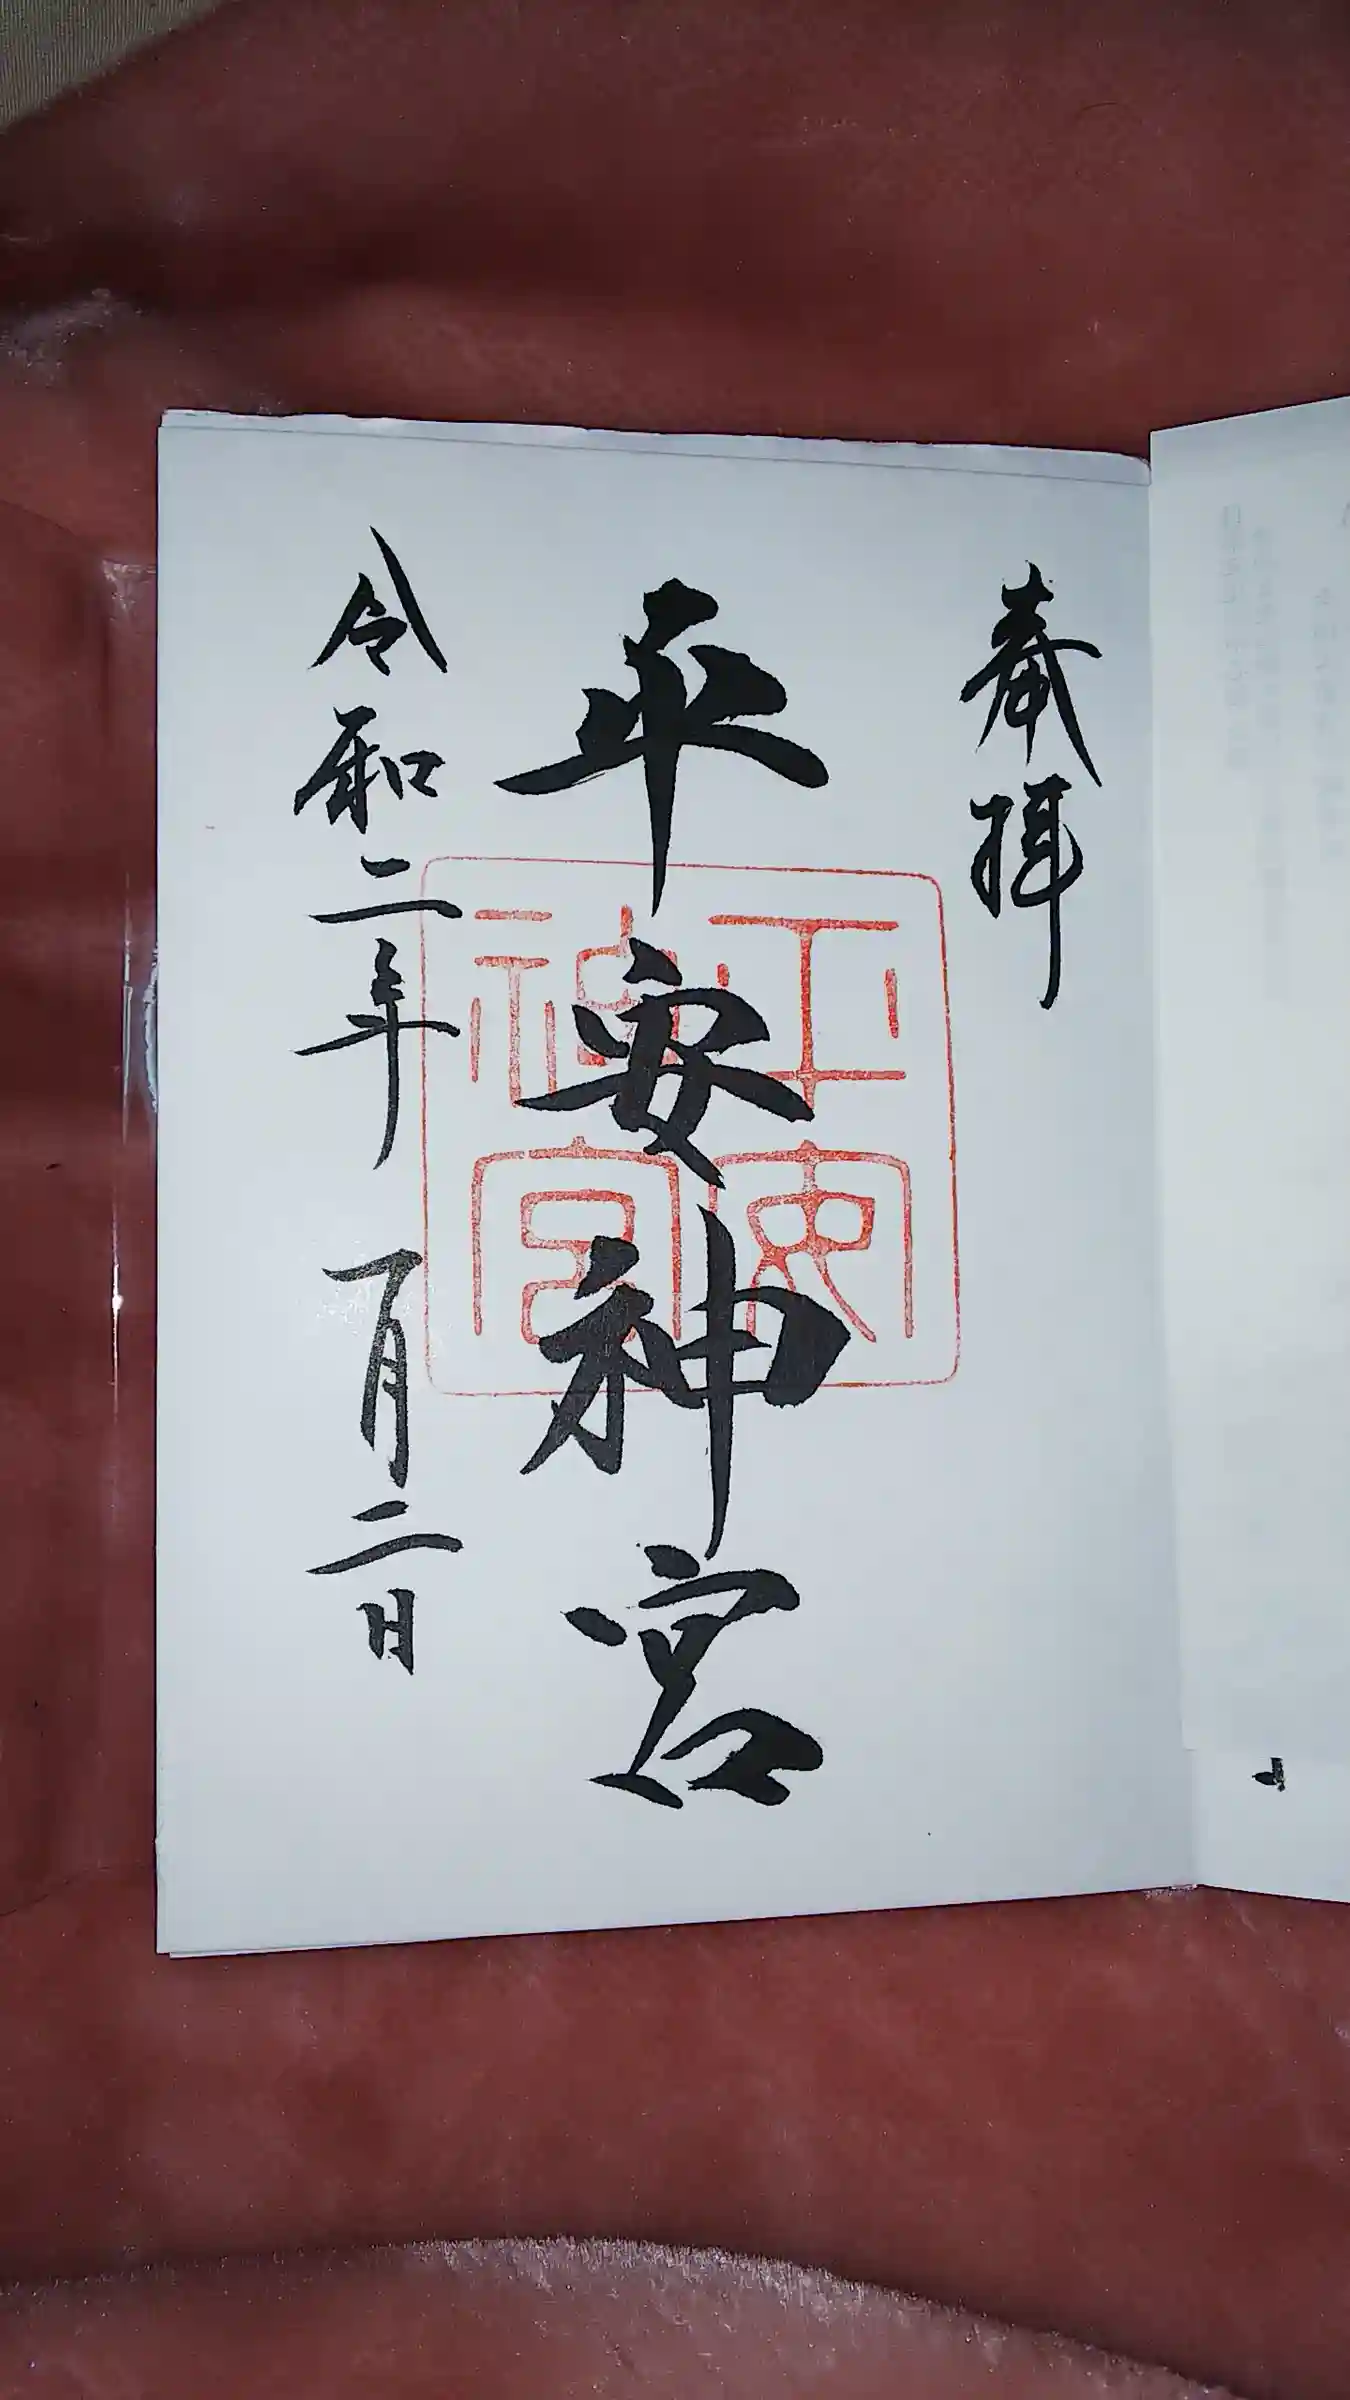 奉拝
平安神宮
平安
神宮
令和二年一月二日